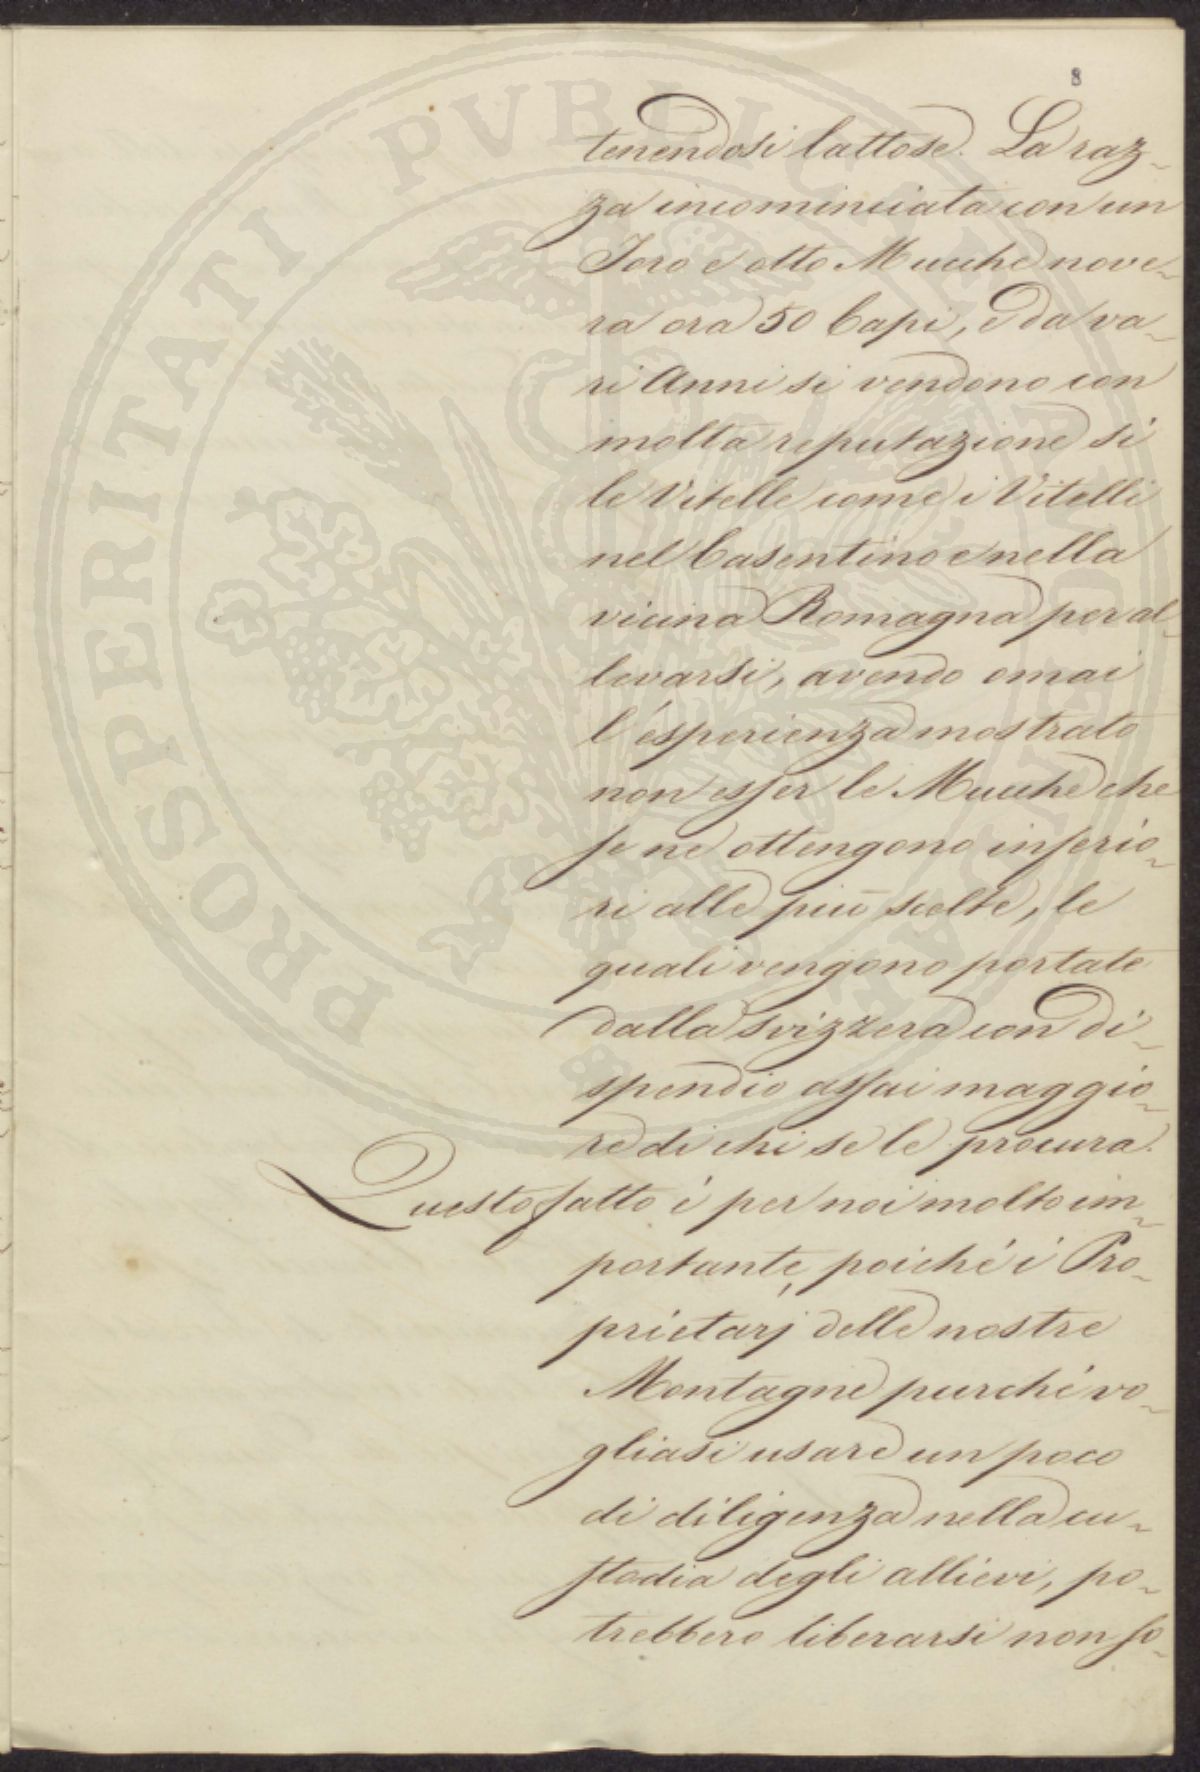 8
tenendosi lattose. La raz-
za incominciata con un
Toro e otto Mucche nove-
ra ora 50 Capi, e da va-
ri Anni si vendono con
molta reputazione sì
le Vitelle come i Vitelli
nel Casentino e nella
vicina Romagna per al-
levarsi, avendo omai
l'esperienza mostrato
non esser le Mucche che
se ne ottengono inferio-
ri alle più scelte, le
quali vengono portate
dalla Svizzera con di-
spendio assai maggio-
re di chi se le procura.
Questo fatto è per noi molto im-
portante, poiché i Pro-
prietarj delle nostre
Montagne purché vo-
gliasi usare un poco
di diligenza nella cu-
stodia degli allievi, po-
trebbero liberarsi non so-
PROSPERITATI PVBLICAE